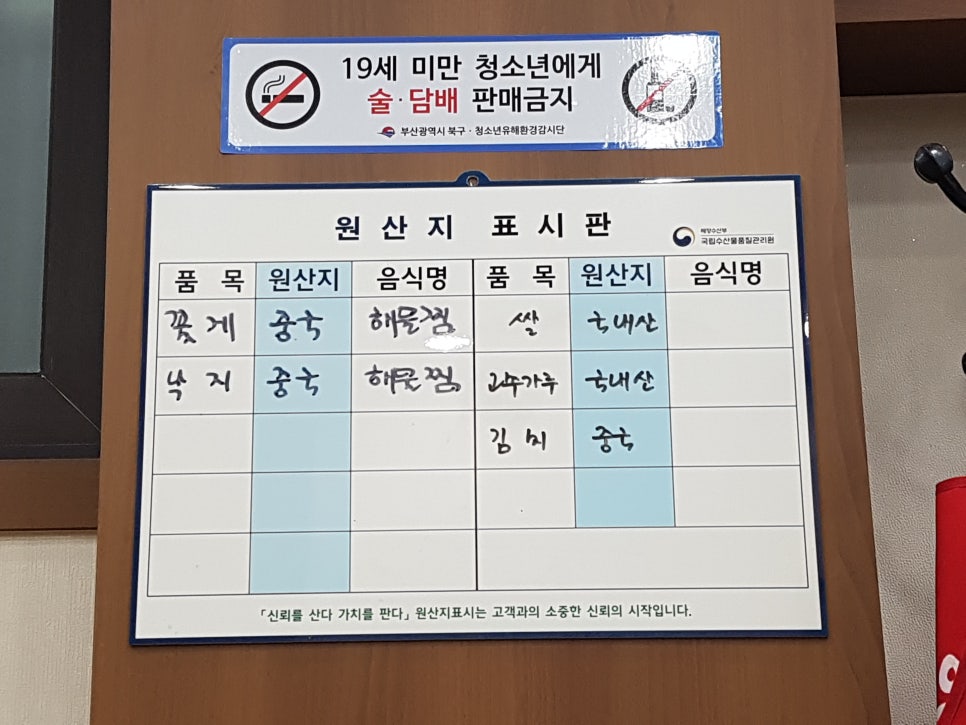 19세 미만 청소년에게
술·담배 판매금지
부산광역시 북구·청소년유해환경감시단
원산지 표시판
해양수산부
국립수산물품질관리원
품목 원산지 음식명 품목 원산지 음식명
꽃게 중국 해물찜 쌀 국내산
낙지 중국 해물찜 고추가루 국내산
김치 중국
「신뢰를 산다 가치를 판다」 원산지표시는 고객과의 소중한 신뢰의 시작입니다.